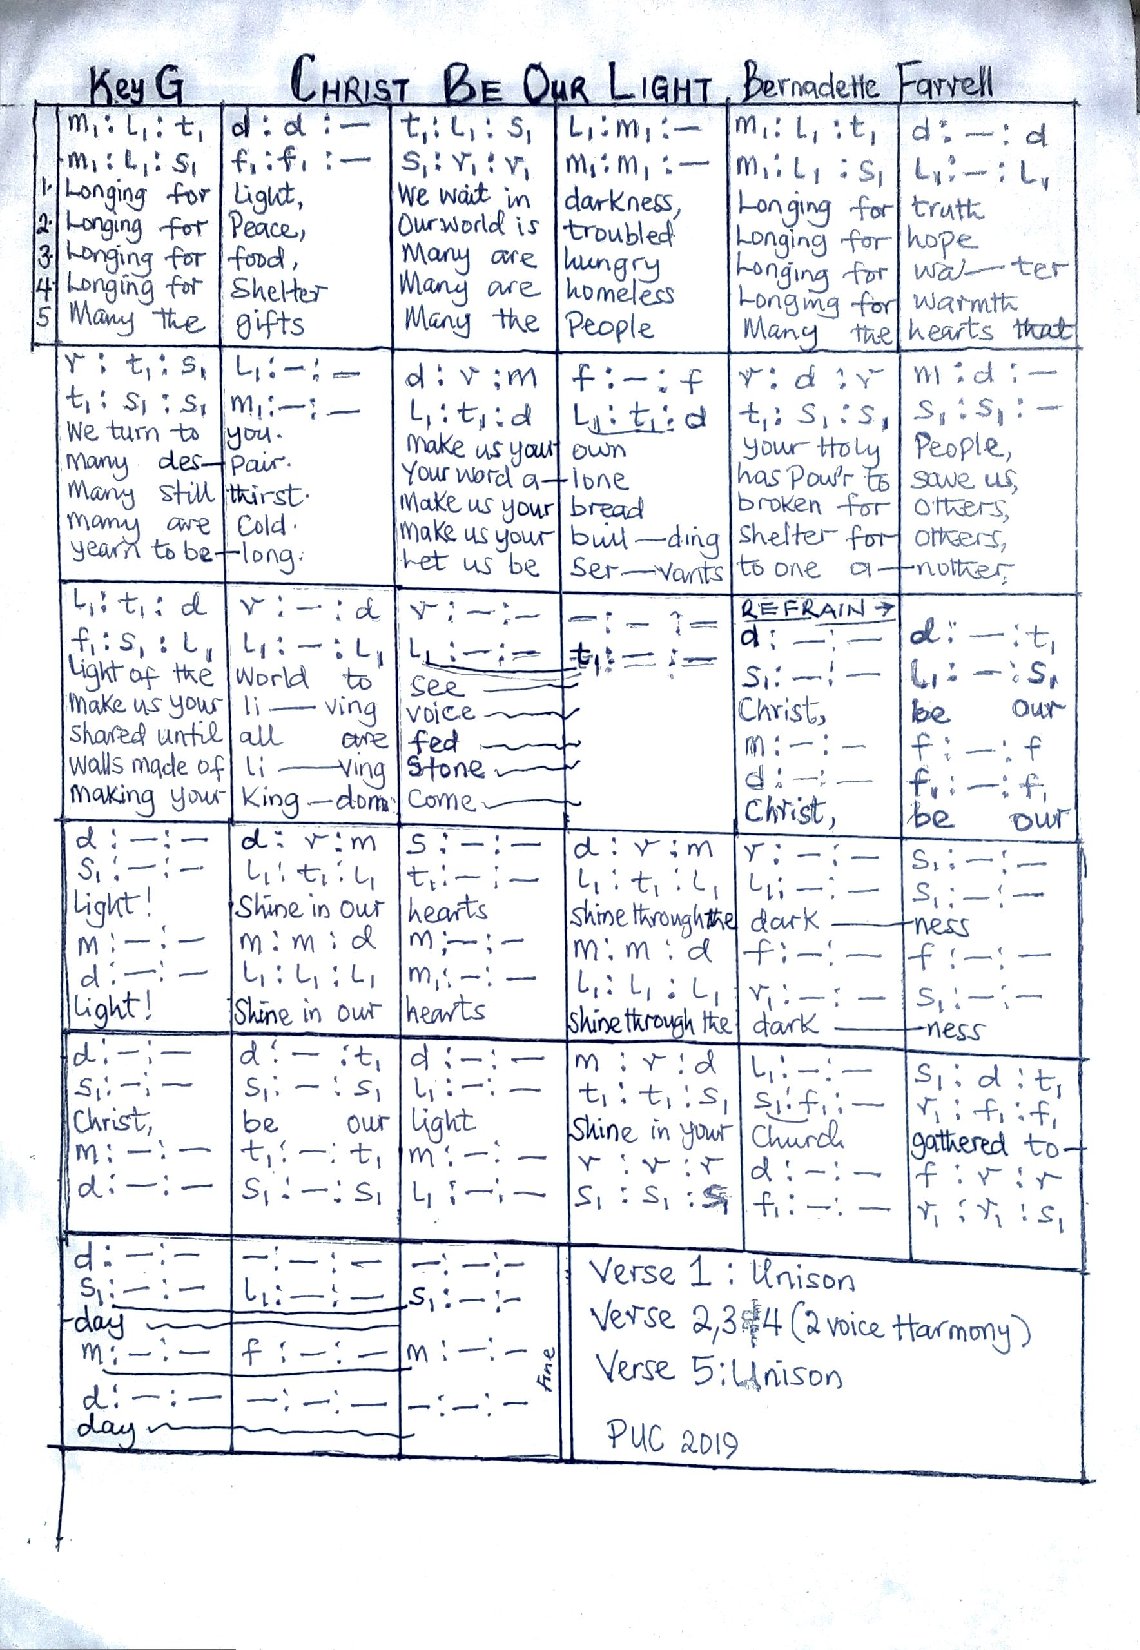 Key G CHRIST BE OUR LIGHT, Bernadette Farrell
m₁ : L₁ : t₁ | d : d : — | t₁ : L₁ : s₁ | L₁ : m₁ : — | m₁ : L₁ : t₁ | d : — : d
m₁ : L₁ : s₁ | f₁ : f₁ : — | s₁ : r₁ : r₁ | m₁ : m₁ : — | m₁ : L₁ : s₁ | L₁ : — : L₁
1. Longing for | Light, | We wait in | darkness, | Longing for | truth
2. Longing for | Peace, | Our world is | troubled | Longing for | hope
3. Longing for | food, | Many are | hungry | Longing for | wa—ter
4. Longing for | Shelter | Many are | homeless | Longing for | warmth
5 Many the | gifts | Many the | People | Many the | hearts that
r : t₁ : s₁ | L₁ : — : — | d : r : m | f : — : f | r : d : r | m : d : —
t₁ : s₁ : s₁ | m₁ : — : — | L₁ : t₁ : d | L₁ : t₁ : d | t₁ : s₁ : s₁ | s₁ : s₁ : —
We turn to | you. | make us your | own | your Holy | People,
Many des— | pair. | Your word a— | lone | has Pow'r to | save us,
Many still | thirst. | Make us your | bread | broken for | others,
many are | Cold. | make us your | buil—ding | Shelter for | others,
yearn to be— | long. | Let us be | Ser—vants | to one a— | nother,
L₁ : t₁ : d | r : — : d | r : — : — | — : — : — | REFRAIN →
f₁ : s₁ : L₁ | L₁ : — : L₁ | L₁ : — : — | t₁ : — : — | d : — : — | d : — : t₁
Light of the | World to | see | s₁ : — : — | L₁ : — : s₁
make us your | li—ving | voice | Christ, | be our
shared until | all are | fed | m : — : — | f : — : f
walls made of | li—ving | Stone | d : — : — | f₁ : — : f₁
making your | King—dom | Come | Christ, | be our
d : — : — | d : r : m | s : — : — | d : r : m | r : — : — | s₁ : — : —
s₁ : — : — | L₁ : t₁ : L₁ | t₁ : — : — | L₁ : t₁ : L₁ | L₁ : — : — | s₁ : — : —
Light! | Shine in our | hearts | shine through the | dark — | ness
m : — : — | m : m : d | m : — : — | m : m : d | f : — : — | f : — : —
d : — : — | L₁ : L₁ : L₁ | m₁ : — : — | L₁ : L₁ : L₁ | r₁ : — : — | s₁ : — : —
Light! | Shine in our | hearts | Shine through the | dark — | ness
d : — : — | d : — : t₁ | d : — : — | m : r : d | L₁ : — : — | s₁ : d : t₁
s₁ : — : — | s₁ : — : s₁ | L₁ : — : — | t₁ : t₁ : s₁ | s₁ : f₁ : — | r₁ : f₁ : f₁
Christ, | be our | light | Shine in your | Church | gathered to—
m : — : — | t₁ : — : t₁ | m : — : — | r : r : r | d : — : — | f : r : r
d : — : — | s₁ : — : s₁ | L₁ : — : — | s₁ : s₁ : s₁ | f₁ : — : — | r₁ : r₁ : s₁
d : — : — | — : — : — | — : — : —
s₁ : — : — | L₁ : — : — | s₁ : — : —
day
m : — : — | f : — : — | m : — : —
d : — : — | — : — : — | — : — : —
day
Fine
Verse 1 : Unison
Verse 2,3 & 4 (2 voice Harmony)
Verse 5 : Unison
PUC 2019